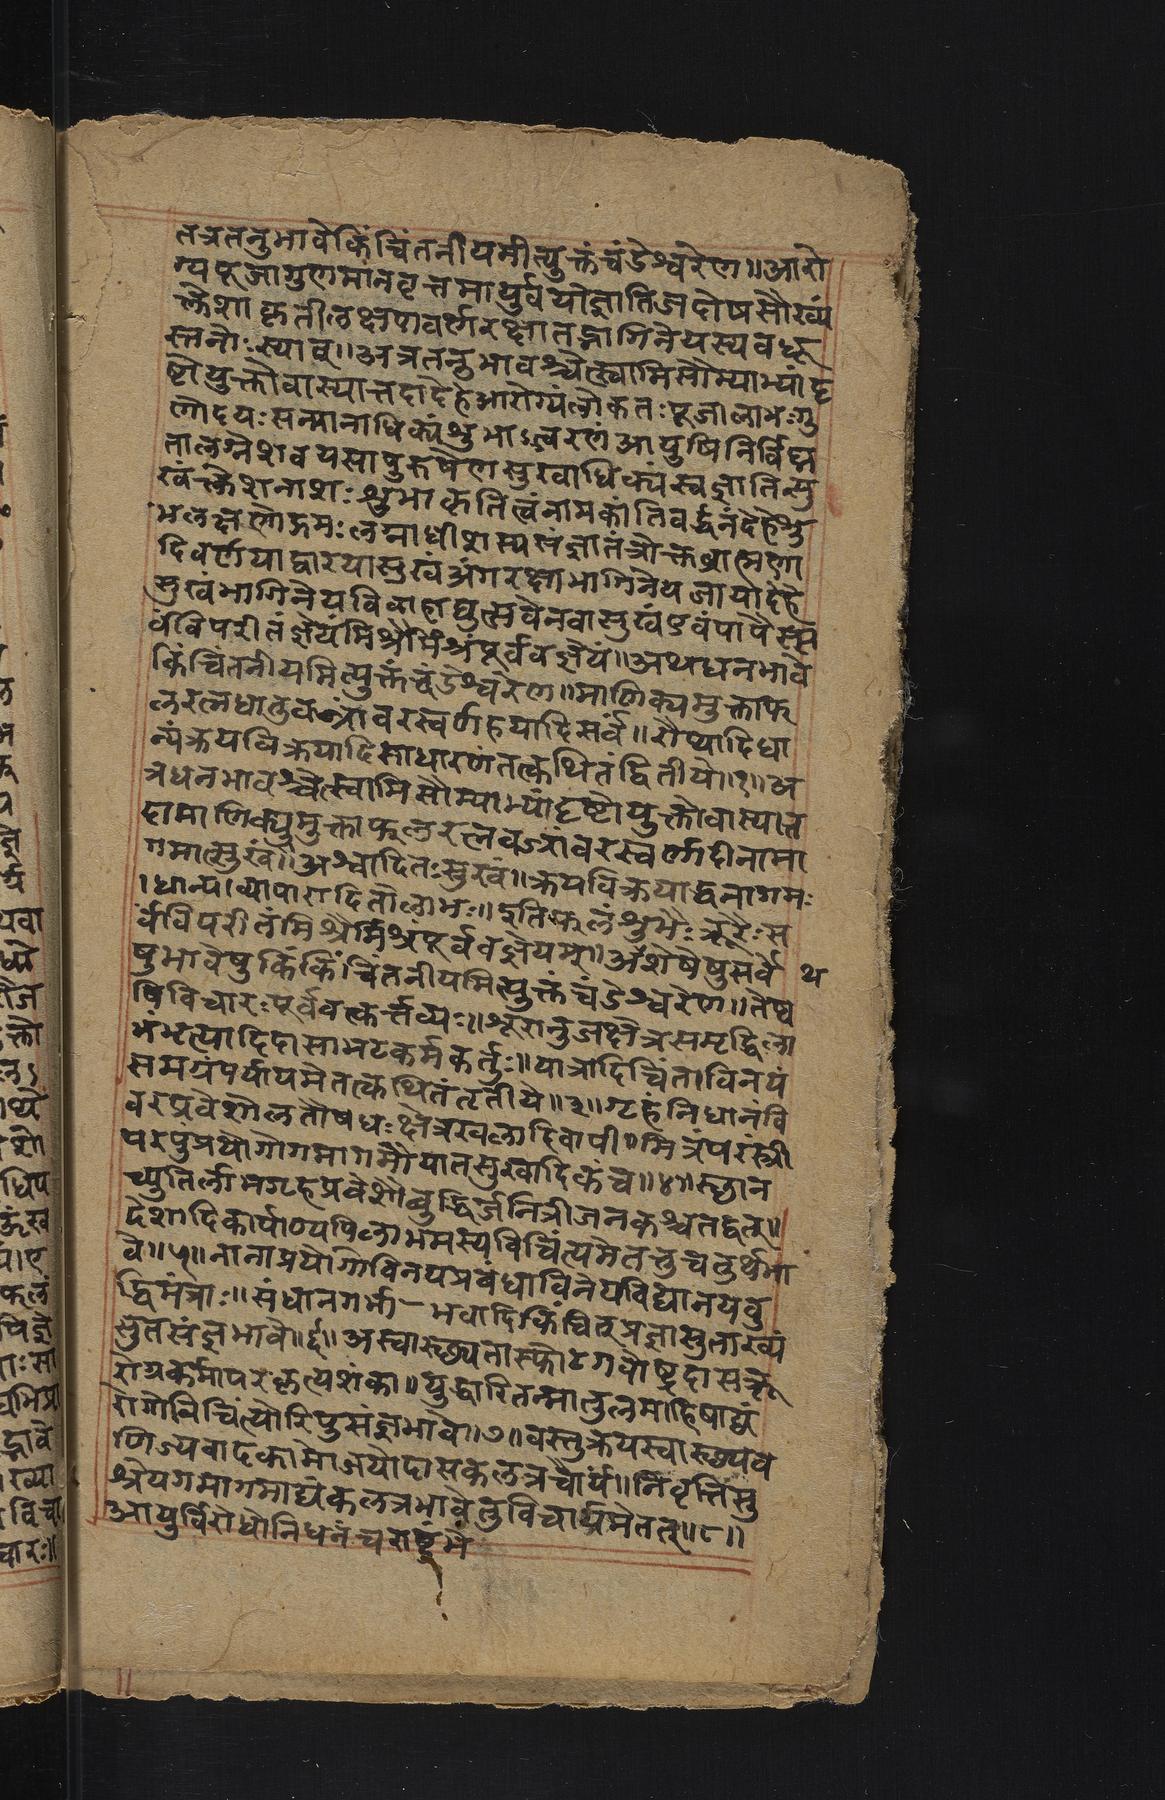 तत्रतनुभावेकिंचिंतनीयमीत्युक्तंचंडेश्वरेण॥आरो
ग्यपूजागुणमानवृत्तमायुर्वयोज्ञातिजदोषसौख्यं
क्लेशाकृतीलक्षणवर्णरक्षातद्भागिनेयस्यवधू
स्तनोःस्यात्॥अत्रतनुभावश्चेत्स्वामिसौम्याभ्यांदृ
ष्टोयुक्तोवास्यात्तदादेहेआरोग्यंलोकतःपूजालाभःगु
णोदयःसन्मानाधिक्यंशुभाऽचरणंआयुषिनिर्विघ्न
तालग्नेशवयसापुरुषेणसुखाधिक्यंस्वज्ञातिसु
खंक्लेशनाशःशुभाकृतित्वंनामकांतिवर्द्धनंदेहेशु
भलक्षणोद्गमःलग्नाधीशस्यसंज्ञातंत्रोक्तब्राह्मणा
दिवर्णयाद्वारयासुखंअंगरक्षाभागिनेयजायादेहे
सुखंभागिनेयविवाहाद्युत्सवेनवासुखंएवंपापैस्स
र्वंविपरीतंज्ञेयंमिश्रैर्मिश्रंपूर्ववज्ज्ञेयं॥अथधनभावे
किंचिंतनीयमित्युक्तंचंडेश्वरेण॥माणिक्यमुक्ताफ
लरत्नधातुवस्त्रांवरस्वर्णहयादिसर्वं॥रौप्यादिधा
न्यंक्रयविक्रयादिसाधारणंतत्कथितंद्वितीये॥१॥अ
त्रधनभावश्चेत्स्वामिसौम्याभ्यांदृष्टोयुक्तोवास्यात्त
दामाणिक्यमुक्ताफलरत्नवस्त्रांवरस्वर्णादीनामा
गमात्सुखं॥अश्वादितःसुखं॥क्रयविक्रयाद्धनागमः
।धान्यव्यापारादितोलाभः॥इतिफलंशुभैःक्रूरैःस
र्वंविपरीतंमिश्रैर्मिश्रंपूर्ववज्ज्ञेयम्॥अशेषेषुसर्वे थ
षुभावेषुकिंकिंचिंतनीयमित्युक्तंचंडेश्वरेण॥तेष्व
पिविचारःपूर्ववत्कर्त्तव्यः॥शूरानुजक्षेत्रसमृद्धिला
भंभृत्यादिदासाभटकर्मकर्तुः॥यात्रादिचिंताविनयं
समग्रंपर्यायमेतत्कथितंतृतीये॥३॥गृहंनिधानंवि
वरप्रवेशोलतौषधःक्षेत्रखलादिवापी॥मित्रंपरंस्त्री
परपुंप्रयोगोगमागमौयातसुखादिकंच॥४॥स्थान
च्युतिर्लाभगृहप्रवेशोबुद्धिर्जनित्रीजनकश्चतद्वत्॥
देशादिकार्पाण्यपिलाभमस्यविचिंत्यमेतत्तुचतुर्थभा
वे॥५॥नानाप्रयोगोविनयप्रबंधाविनेयविद्यानयवु
द्धिमंत्राः॥संधानगर्भा भवादिकिंचित्प्रज्ञासुताख्यं
सुतसंज्ञभावे॥६॥अस्वास्थ्यतास्फोटगवोष्ट्रदासक्रू
रोग्रकर्मापरकृत्यशंका॥युद्धारितन्मातुलमाहिषाद्यं
रोगोविचिंत्योरिपुसंज्ञभावे॥७॥वस्तुक्रयस्वास्थ्यव
णिज्यवादकामोजयोदासकलत्रचौर्यं॥निवृत्तिसु
श्रेयगमागमाद्यंकलत्रभावेतुविचार्यमेतत्॥८॥
आयुर्विरोधोनिधनंचराष्ट्रंभे